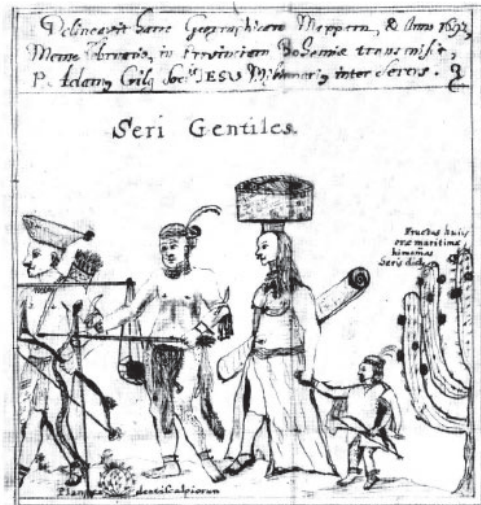 Delineavit hanc Geographicam Mappam, & Anno 1692,
Mense Februario, in Provinciam Bohemiæ transmisit,
P. Adam, Gilg Soc. JESU Missionari, inter Seros.
Seri Gentiles.
Fructus huius
oræ maritimæ
Seris
Planta dentiscalpiorum